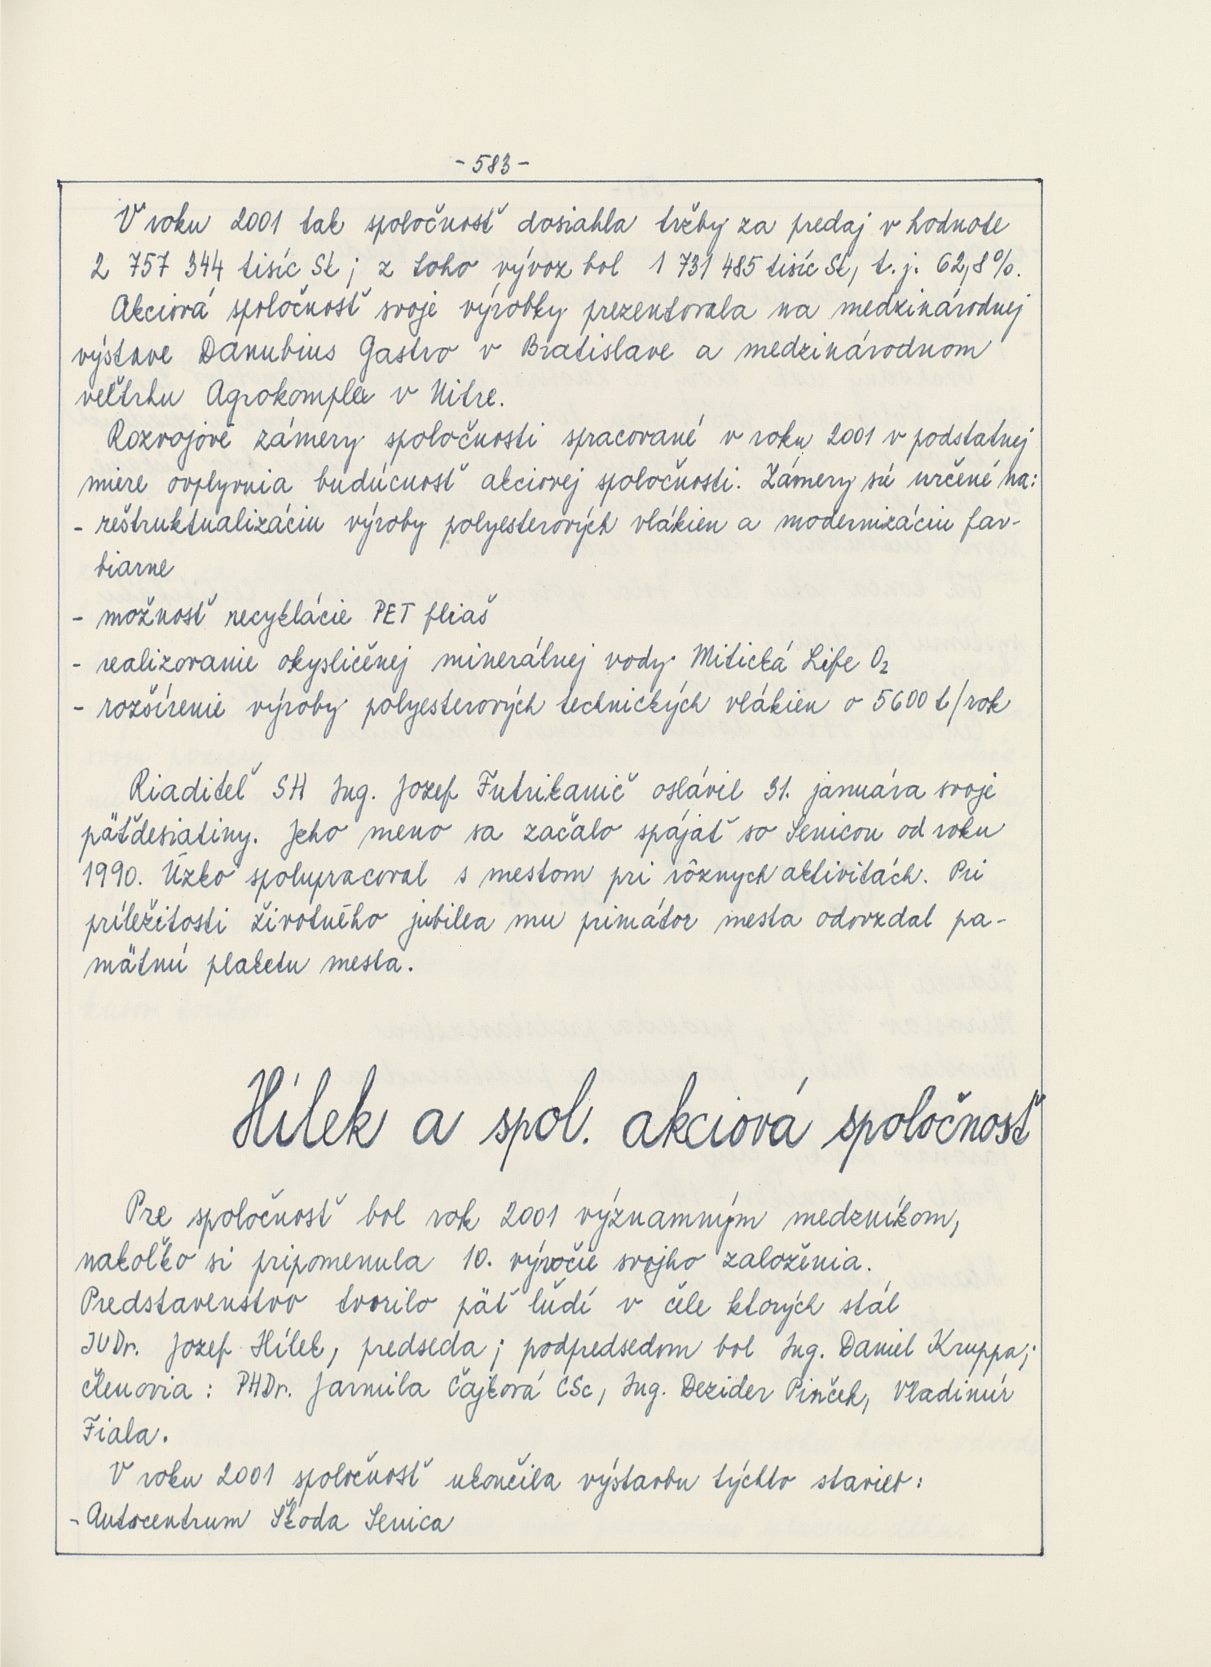 -583-
V roku 2001 tak spoločnosť dosiahla tržby za predaj v hodnote
2 757 344 tisíc Sk; z toho vývoz bol 1 731 485 tisíc Sk, t.j. 62,8%.
Akciová spoločnosť svoje výrobky prezentovala na medzinárodnej
výstave Danubius Gastro v Bratislave a medzinárodnom
veľtrhu Agrokomplex v Nitre.
Rozvojové zámery spoločnosti spracované v roku 2001 v podstatnej
miere ovplyvnia budúcnosť akciovej spoločnosti. Zámery sú určené na:
- reštruktualizáciu výroby polyesterových vlákien a modernizáciu far-
biarne
- možnosť recyklácie PET fliaš
- realizovanie okysličenej minerálnej vody Mitická Life O2
- rozšírenie výroby polyesterových technických vlákien o 5600 t/rok
Riaditeľ SH Ing. Jozef Futrikanič oslávil 31. januára svoje
päťdesiatiny. Jeho meno sa začalo spájať so Senicou od roku
1990. Úzko spolupracoval s mestom pri rôznych aktivitách. Pri
príležitosti životného jubilea mu primátor mesta odovzdal pa-
mätnú plaketu mesta.
Hílek a spol. akciová spoločnosť
Pre spoločnosť bol rok 2001 významným medzníkom,
nakoľko si pripomenula 10. výročie svojho založenia.
Predstavenstvo tvorilo päť ľudí v čele ktorých stál
JUDr. Jozef Hílek, predseda; podpredsedom bol Ing. Daniel Kruppa;
členovia: PHDr. Jarmila Čajková CSc, Ing. Dezider Pinček, Vladimír
Fiala.
V roku 2001 spoločnosť ukončila výstavbu týchto stavieb:
- Autocentrum Škoda Senica